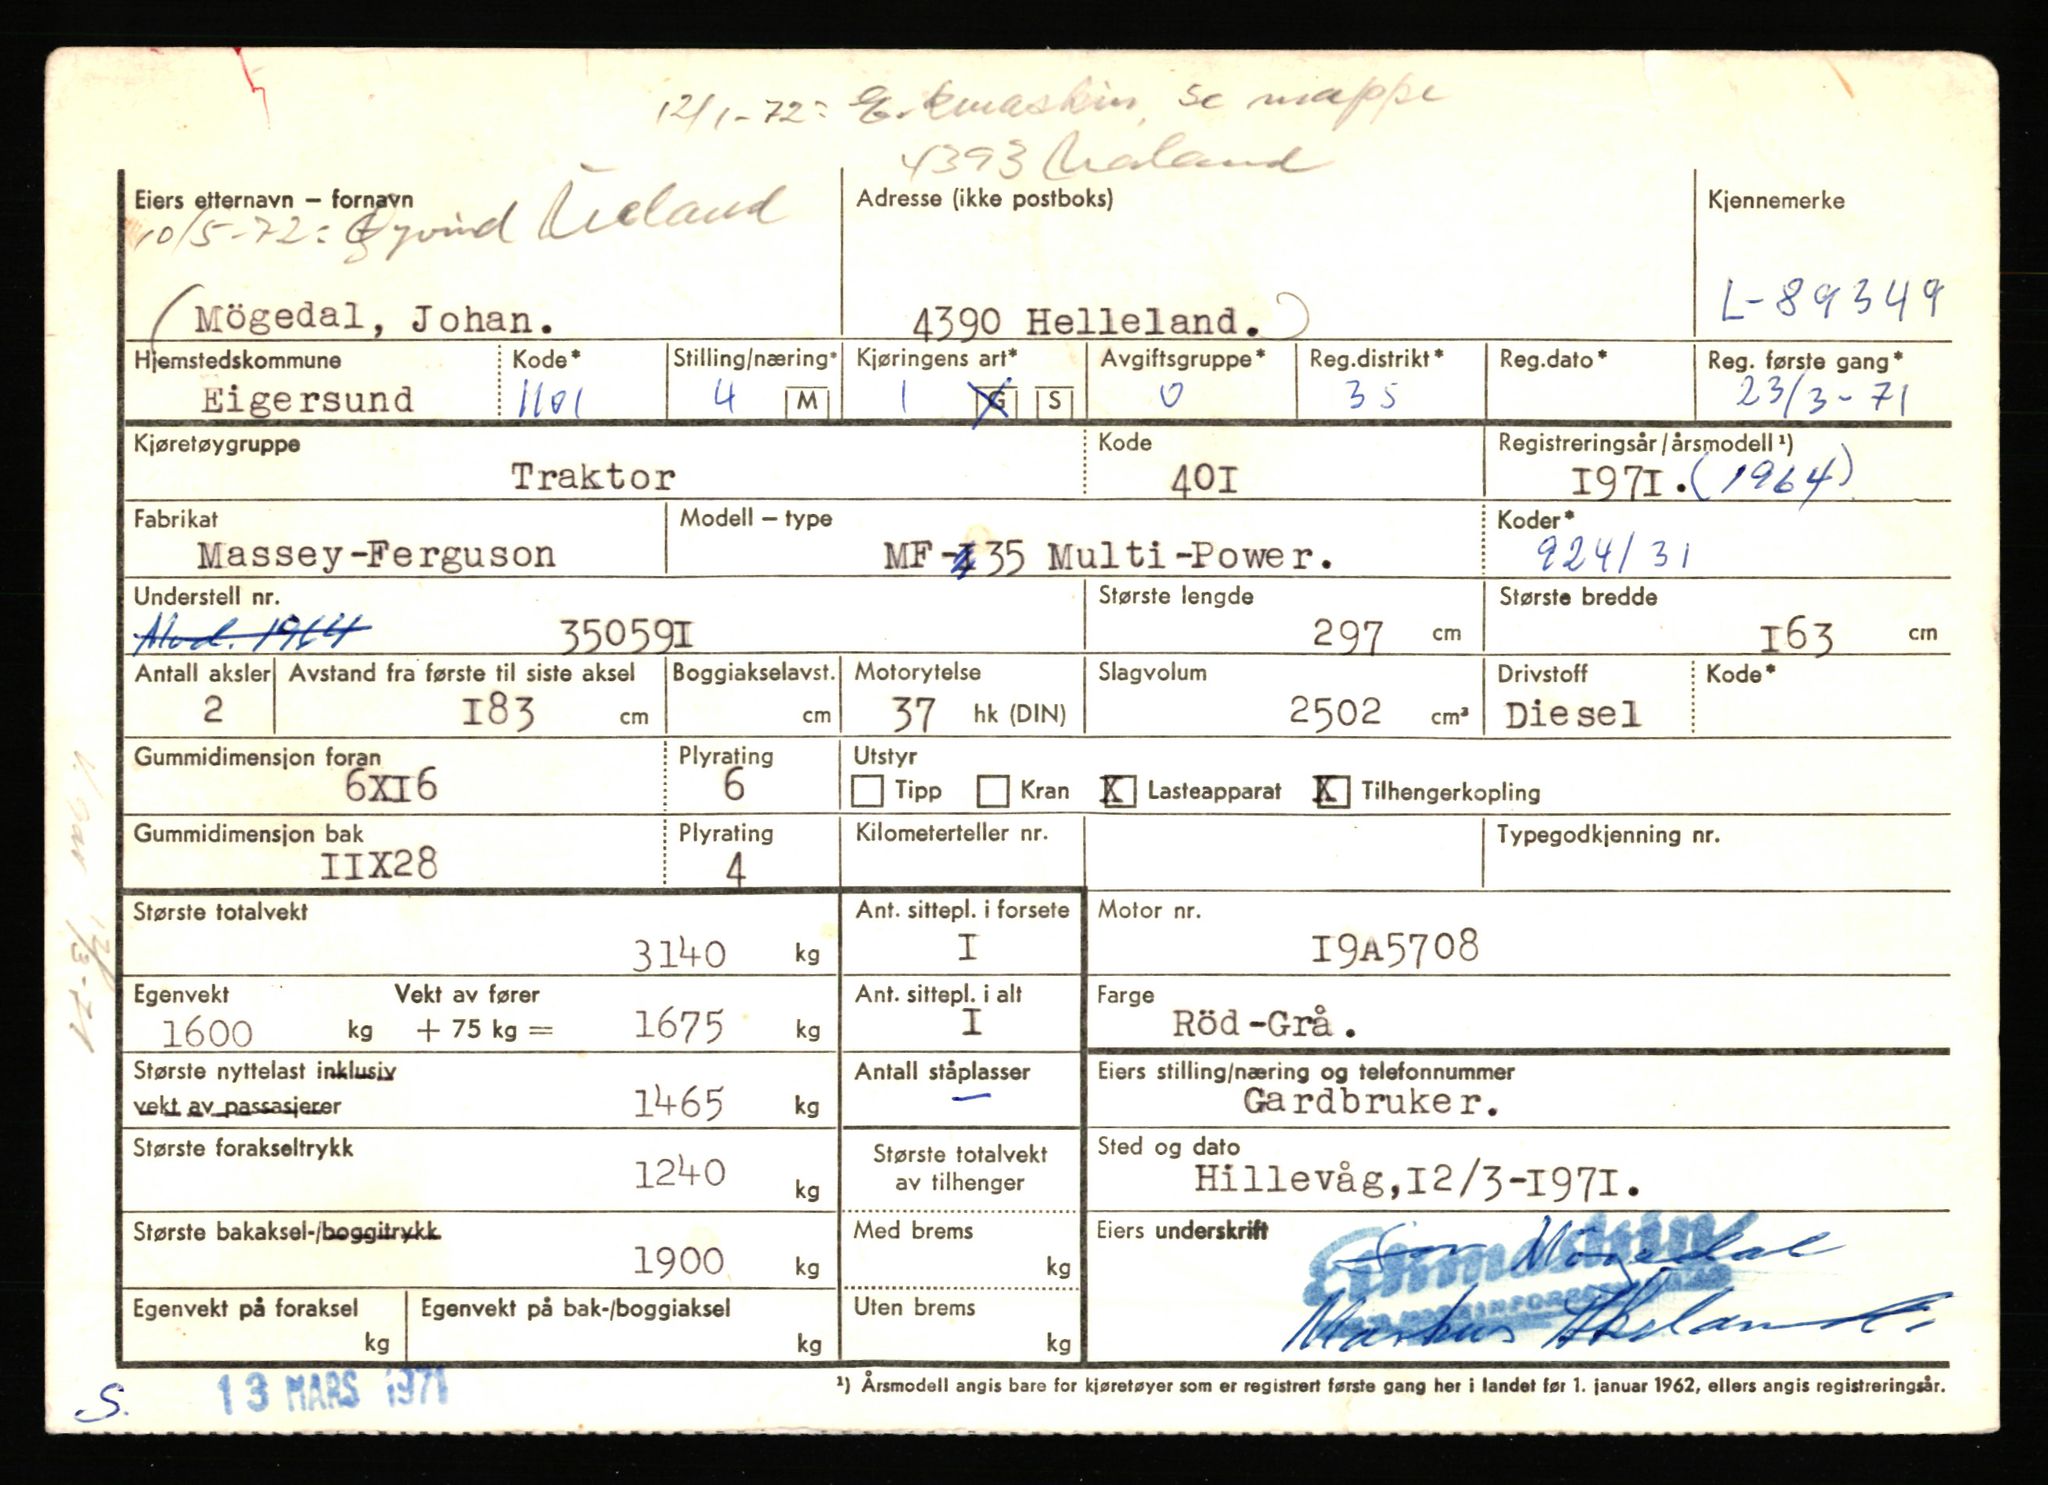 12/1-72: E. kmaskin, se mappe
4393 Ualand
Eiers etternavn – fornavn
10/5-72: Øyvind Ueland
Adresse (ikke postboks)
Kjennemerke
(Mögedal, Johan.
4390 Helleland.)
L-89349
Hjemstedskommune
Kode*
Stilling/næring*
Kjøringens art*
Avgiftsgruppe*
Reg.distrikt*
Reg.dato*
Reg. første gang*
Eigersund
1101
4 M
1 G S
0
35
23/3-71
Kjøretøygruppe
Kode
Registreringsår/årsmodell ¹)
Traktor
40I
I97I. (1964)
Fabrikat
Modell – type
Koder*
Massey-Ferguson
MF- 35 Multi-Power.
924/31
Understell nr.
Største lengde
Største bredde
Mod. 1964
35059I
297 cm
I63 cm
Antall aksler
Avstand fra første til siste aksel
Boggiakselavst.
Motorytelse
Slagvolum
Drivstoff
Kode*
2
I83 cm
cm
37 hk (DIN)
2502 cm³
Diesel
Gummidimensjon foran
Plyrating
Utstyr
6XI6
6
Tipp Kran X Lasteapparat X Tilhengerkopling
Gummidimensjon bak
Plyrating
Kilometerteller nr.
Typegodkjenning nr.
IIX28
4
Største totalvekt
3140 kg
Ant. sittepl. i forsete
I
Motor nr.
I9A5708
Egenvekt
Vekt av fører
1600 kg + 75 kg = 1675 kg
Ant. sittepl. i alt
I
Farge
Röd-Grå.
Største nyttelast inklusiv
vekt av passasjerer
1465 kg
Antall ståplasser
–
Eiers stilling/næring og telefonnummer
Gardbruker.
Største forakseltrykk
1240 kg
Største totalvekt
av tilhenger
Sted og dato
Hillevåg,I2/3-I97I.
Største bakaksel-/boggitrykk
1900 kg
Med brems
kg
Eiers underskrift
Eikmaskin
Mögedal
Markus
Egenvekt på foraksel
kg
Egenvekt på bak-/boggiaksel
kg
Uten brems
kg
S.
13 MARS 1971
¹) Årsmodell angis bare for kjøretøyer som er registrert første gang her i landet før 1. januar 1962, ellers angis registreringsår.
12/3-71